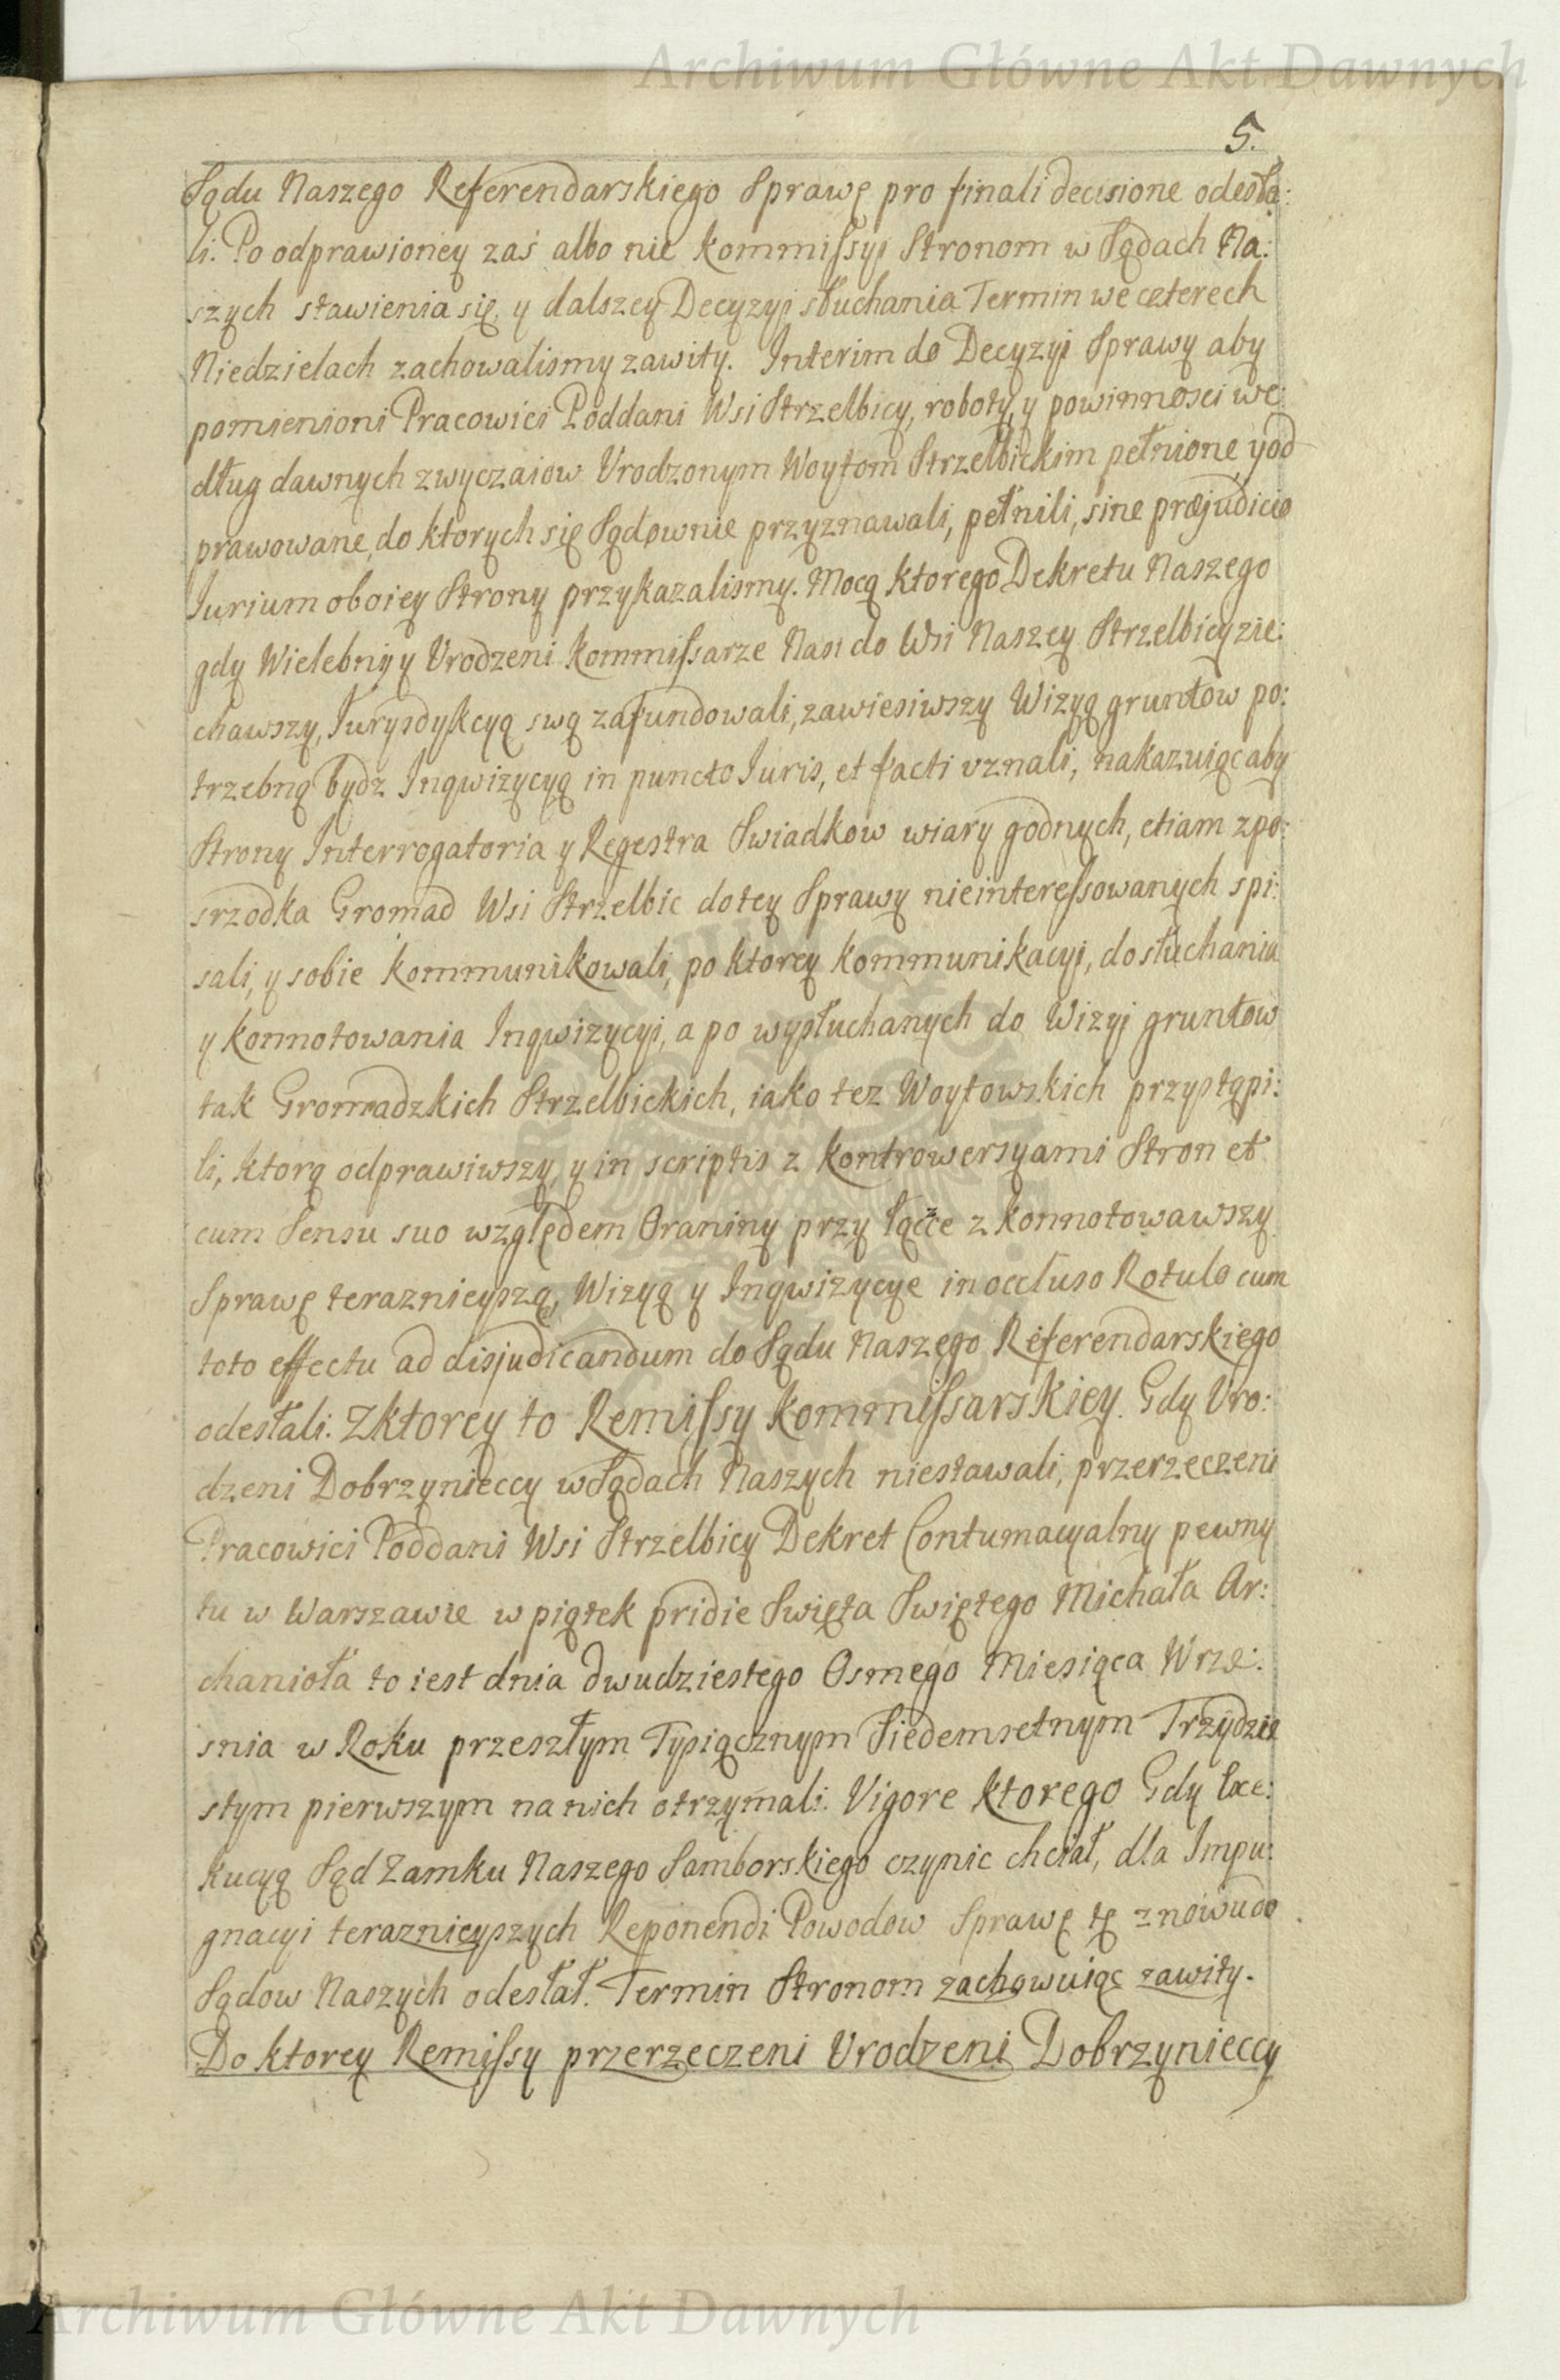 Archiwum Główne Akt Dawnych
5.
Sądu Naszego Referendarskiego Sprawę pro finali decisione odesła:
li. Po odprawioney zaś albo nie kommiſsyi Stronom w Sądach Na:
szych stawienia się, y dalszey Decyzyi słuchania Termin we czterech
Niedzielach zachowalismy zawity. Interim do Decyzyi Sprawy aby
pomienioni Pracowici Poddani Wsi Strzelbicy, roboty, y powinnosci we:
dług dawnych zwyczaiow Urodzonym Woytom Strzelbickim pełnione, y od
prawowane, do ktorych się Sądownie przyznawali, pełnili, sine præjudicio
Iurium oboiey Strony przykazalismy. Mocą ktorego Dekretu Naszego
gdy Wielebni y Urodzeni Kommiſsarze Nasi do Wsi Naszey Strzelbicy zie:
chawszy, Iurysdykcyą swą zafundowali, zawiesiwszy Wizyą gruntow po:
trzebną bydz Inqwizycyą in puncto Iuris, et facti uznali, nakazuiąc aby
Strony Interrogatoria y Regestra Swiadkow wiary godnych, etiam zpo:
srzodka Gromad Wsi Strzelbic do tey Sprawy nieintereſsowanych spi:
sali, y sobie kommunikowali, po ktorey kommunikacyi, do słuchania
y konnotowania Inqwizycyi, a po wysłuchanych do Wizyi gruntow
tak Gromadzkich Strzelbickich, iako tez Woytowskich przystąpi:
li, ktorą odprawiwszy, y in scriptis z kontrowersyami Stron et
cum Sensu suo względem Oraniny przy łącze z konnotowawszy
Sprawę teraznieyszą, Wizyą y Inqwizycye in occluso Rotulo cum
toto effectu ad disjudicandum do Sądu Naszego Referendarskiego
odesłali. Z ktorey to Remiſsy Kommiſsarskiey. Gdy Uro:
dzeni Dobrzynieccy w Sądach Naszych niestawali, przerzeczeni
Pracowici Poddani Wsi Strzelbicy Dekret Contumacyalny pewny
tu w Warszawie w piątek pridie Swięta Swiętego Michała Ar:
chanioła to iest dnia dwudziestego Osmego Miesiąca Wrze:
snia w Roku przeszłym Tysiącznym Siedemsetnym Trzydzie
stym pierwszym na nich otrzymali. Vigore ktorego Gdy Exe:
kucyą Sąd Zamku Naszego Samborskiego czynic chciał, dla Impu:
gnacyi teraznieyszych Reponendi Powodow Sprawę tę znowu do
Sądow Naszych odesłał. Termin Stronom zachowuiąc zawity.
Do ktorey Remiſsy przerzeczeni Urodzeni Dobrzynieccy
Archiwum Główne Akt Dawnych